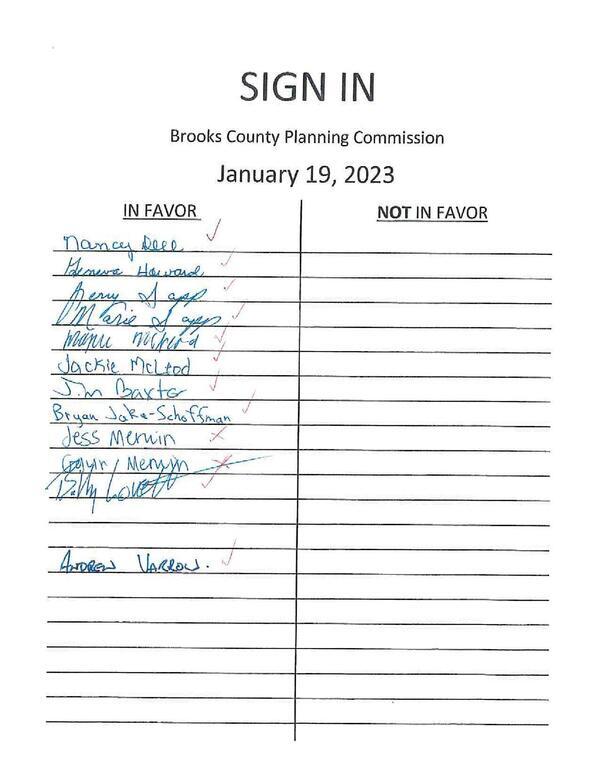 SIGN IN
Brooks County Planning Commission
January 19, 2023
IN FAVOR
NOT IN FAVOR
Nancy Dell
Geneva Howard
Sapp
Marie Sapp
Jackie McLeod
Jim Baxter
Bryan Jake-Schoffman
Jess Merwin
Merwin
Billy Lovett
ANDREW VARROW.